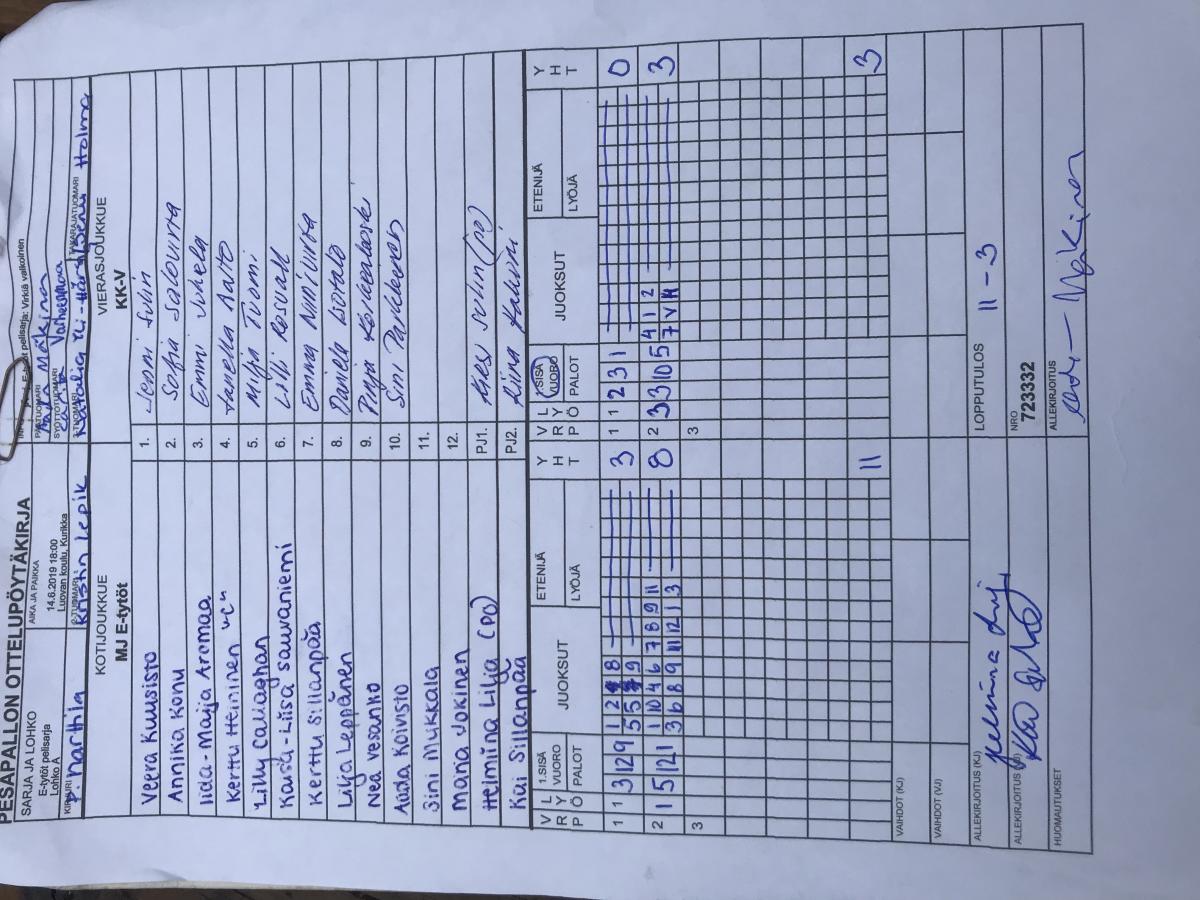 PESÄPALLON OTTELUPÖYTÄKIRJA
SARJA JA LOHKO
E-tytöt pelisarja
Lohko A
AIKA JA PAIKKA
14.6.2019 18:00
Luovan koulu, Kurikka
E-tytöt pelisarja: Virkiä valkoinen
PÄÄTUOMARI
Mäkinen
SYÖTTÖTUOMARI
KIRJURI
P. Marttila
2-TUOMARI
Kristin Lepik
3-TUOMARI
TAKARAJATUOMARI
Holma
KOTIJOUKKUE
MJ E-tytöt
VIERASJOUKKUE
KK-V
Veera Kuusisto 1. Jenni Sulin
Annika Konu 2. Sofia Salovirta
Iida-Maija Aromaa 3. Emmi Juhela
Kerttu Heininen "C" 4. Janella Aalto
Lilly Callaghan 5. Milja Tuomi
Kaisu-Liisa Sauvaniemi 6. Lilji Rosvall
Kerttu Sillanpää 7. Emma
Lilja Leppänen 8. Daniela
Nea Vesanko 9. Pinja
Aada Koivisto 10. Sini
Sini Mukkala 11.
Mana Jokinen 12.
Helmiina Lilja (PO) PJ1. Kirsi Sulin (po)
Kai Sillanpää PJ2. Riina
V R P L Y Ö 1.SISÄ VUORO PALOT JUOKSUT ETENIJÄ LYÖJÄ Y H T V R P L Y Ö 1.SISÄ VUORO PALOT JUOKSUT ETENIJÄ LYÖJÄ Y H T
1 1 3 12 9 1 2 8 3 1 1 2 3 1 0
5 5 9
2 1 5 12 1 1 10 4 6 7 8 9 11 8 2 3 3 10 5 4 1 2 3
3 6 8 9 11 12 1 3 7 V 11
3 3
11 3
VAIHDOT (KJ)
VAIHDOT (VJ)
ALLEKIRJOITUS (KJ)
LOPPUTULOS 11 - 3
ALLEKIRJOITUS (VJ)
NRO
723332
HUOMAUTUKSET
ALLEKIRJOITUS
Mäkinen